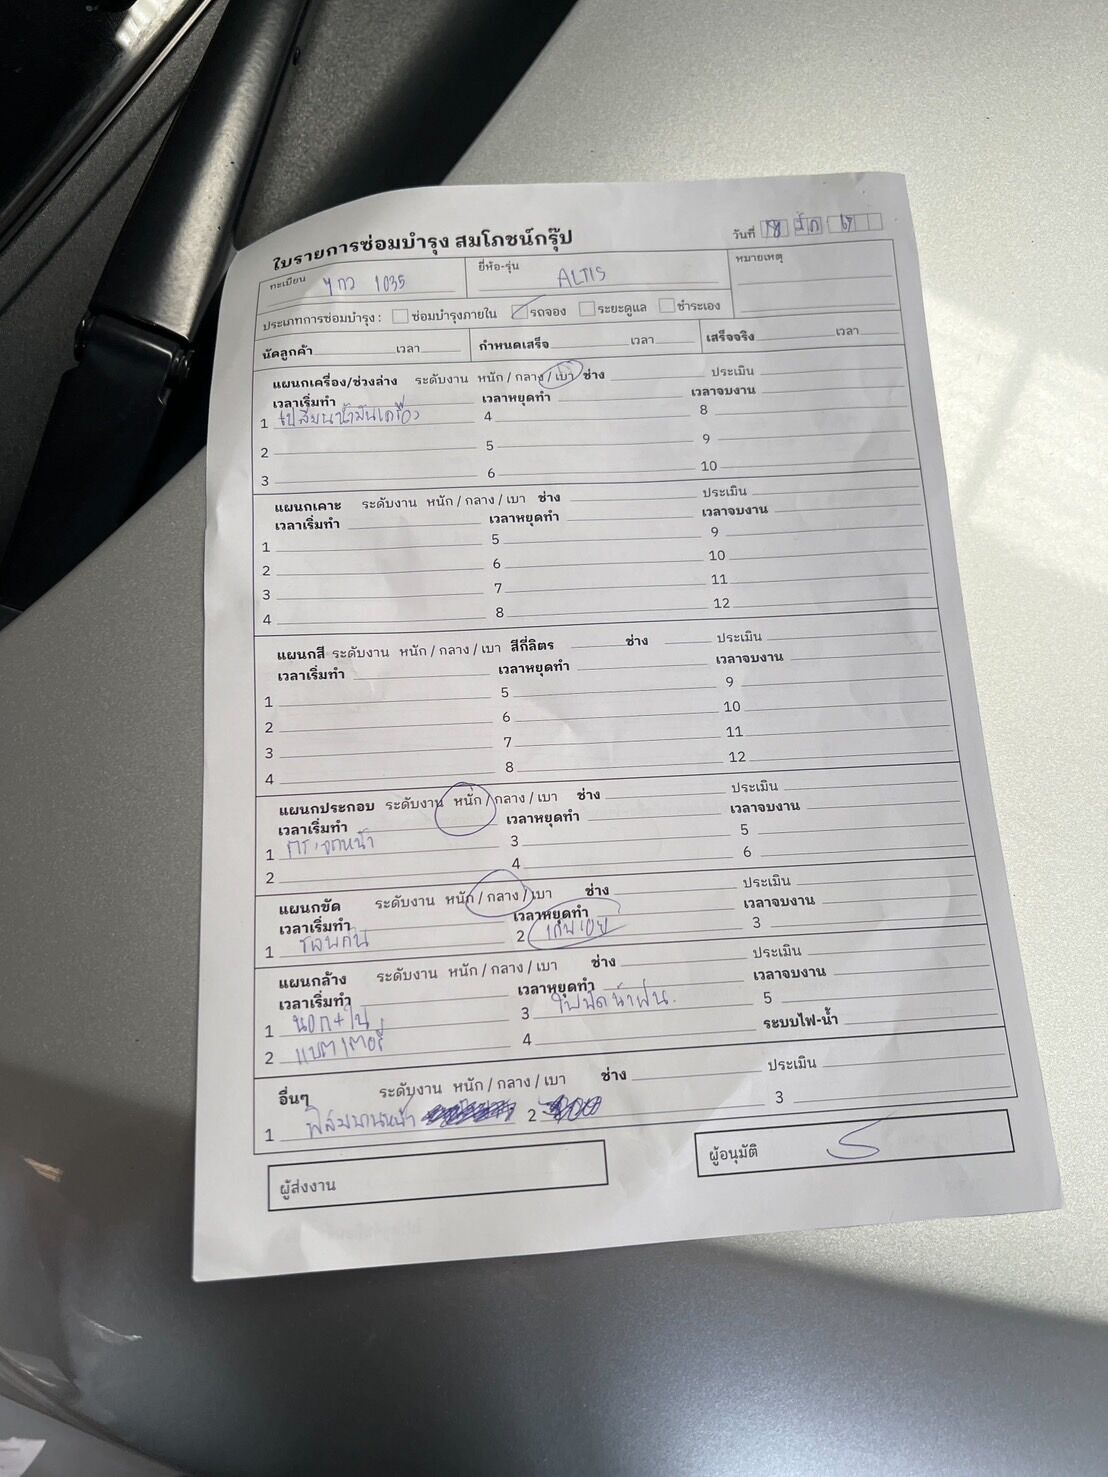 ใบรายการซ่อมบำรุง สมโภชน์กรุ๊ป
วันที่ 18
ทะเบียน 1035
ยี่ห้อ-รุ่น ALTIS
หมายเหตุ
ประเภทการซ่อมบำรุง : ซ่อมบำรุงภายใน รถจอง ระยะดูแล ชำระเอง
นัดลูกค้า เวลา กำหนดเสร็จ เวลา เสร็จจริง เวลา
แผนกเครื่อง/ช่วงล่าง ระดับงาน หนัก / กลาง / เบา ช่าง ประเมิน
เวลาเริ่มทำ เวลาหยุดทำ เวลาจบงาน
1 เปลี่ยนน้ำมันเครื่อง 4 8
2 5 9
3 6 10
แผนกเคาะ ระดับงาน หนัก / กลาง / เบา ช่าง ประเมิน
เวลาเริ่มทำ เวลาหยุดทำ เวลาจบงาน
1 5 9
2 6 10
3 7 11
4 8 12
แผนกสี ระดับงาน หนัก / กลาง / เบา สีกี่ลิตร ช่าง ประเมิน
เวลาเริ่มทำ เวลาหยุดทำ เวลาจบงาน
1 5 9
2 6 10
3 7 11
4 8 12
แผนกประกอบ ระดับงาน หนัก / กลาง / เบา ช่าง ประเมิน
เวลาเริ่มทำ เวลาหยุดทำ เวลาจบงาน
1 กระจกหน้า 3 5
2 4 6
แผนกขัด ระดับงาน หนัก / กลาง / เบา ช่าง ประเมิน
เวลาเริ่มทำ เวลาหยุดทำ เวลาจบงาน
1 2 3
แผนกล้าง ระดับงาน หนัก / กลาง / เบา ช่าง ประเมิน
เวลาเริ่มทำ เวลาหยุดทำ เวลาจบงาน
1 นอก+ใน 3 ใบปัดน้ำฝน 5
2 แบตเตอรี่ 4 ระบบไฟ-น้ำ
อื่นๆ ระดับงาน หนัก / กลาง / เบา ช่าง ประเมิน
1 ฟิล์มบานหน้า 2 3
ผู้ส่งงาน
ผู้อนุมัติ